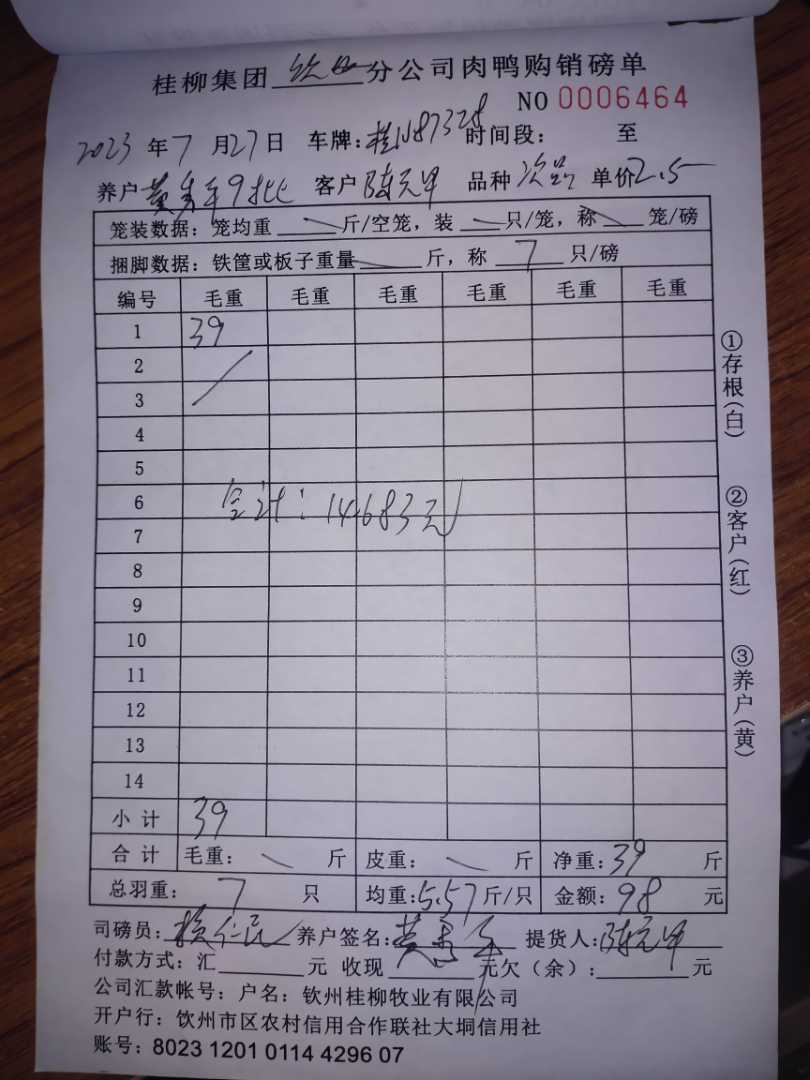 桂柳集团 钦州 分公司肉鸭购销磅单
NO 0006464
2023 年 7 月 27 日 车牌：桂N87328 时间段： 至
养户 黄 9批 客户 陈元甲 品种 次品 单价 2.5
笼装数据：笼均重 斤/空笼，装 只/笼，称 笼/磅
捆脚数据：铁筐或板子重量 斤，称 7 只/磅
编号 毛重 毛重 毛重 毛重 毛重 毛重
1 39
2
3
4
5
6
合计：14683元
7
8
9
10
11
12
13
14
小 计 39
合 计 毛重： 斤 皮重： 斤 净重：39 斤
总羽重： 7 只 均重：5.57 斤/只 金额：98 元
司磅员： 养户签名：黄 提货人：陈元甲
付款方式：汇 元 收现 元欠（余）： 元
公司汇款帐号：户名：钦州桂柳牧业有限公司
开户行：钦州市区农村信用合作联社大垌信用社
账号：8023 1201 0114 4296 07
①存根（白）
②客户（红）
③养户（黄）